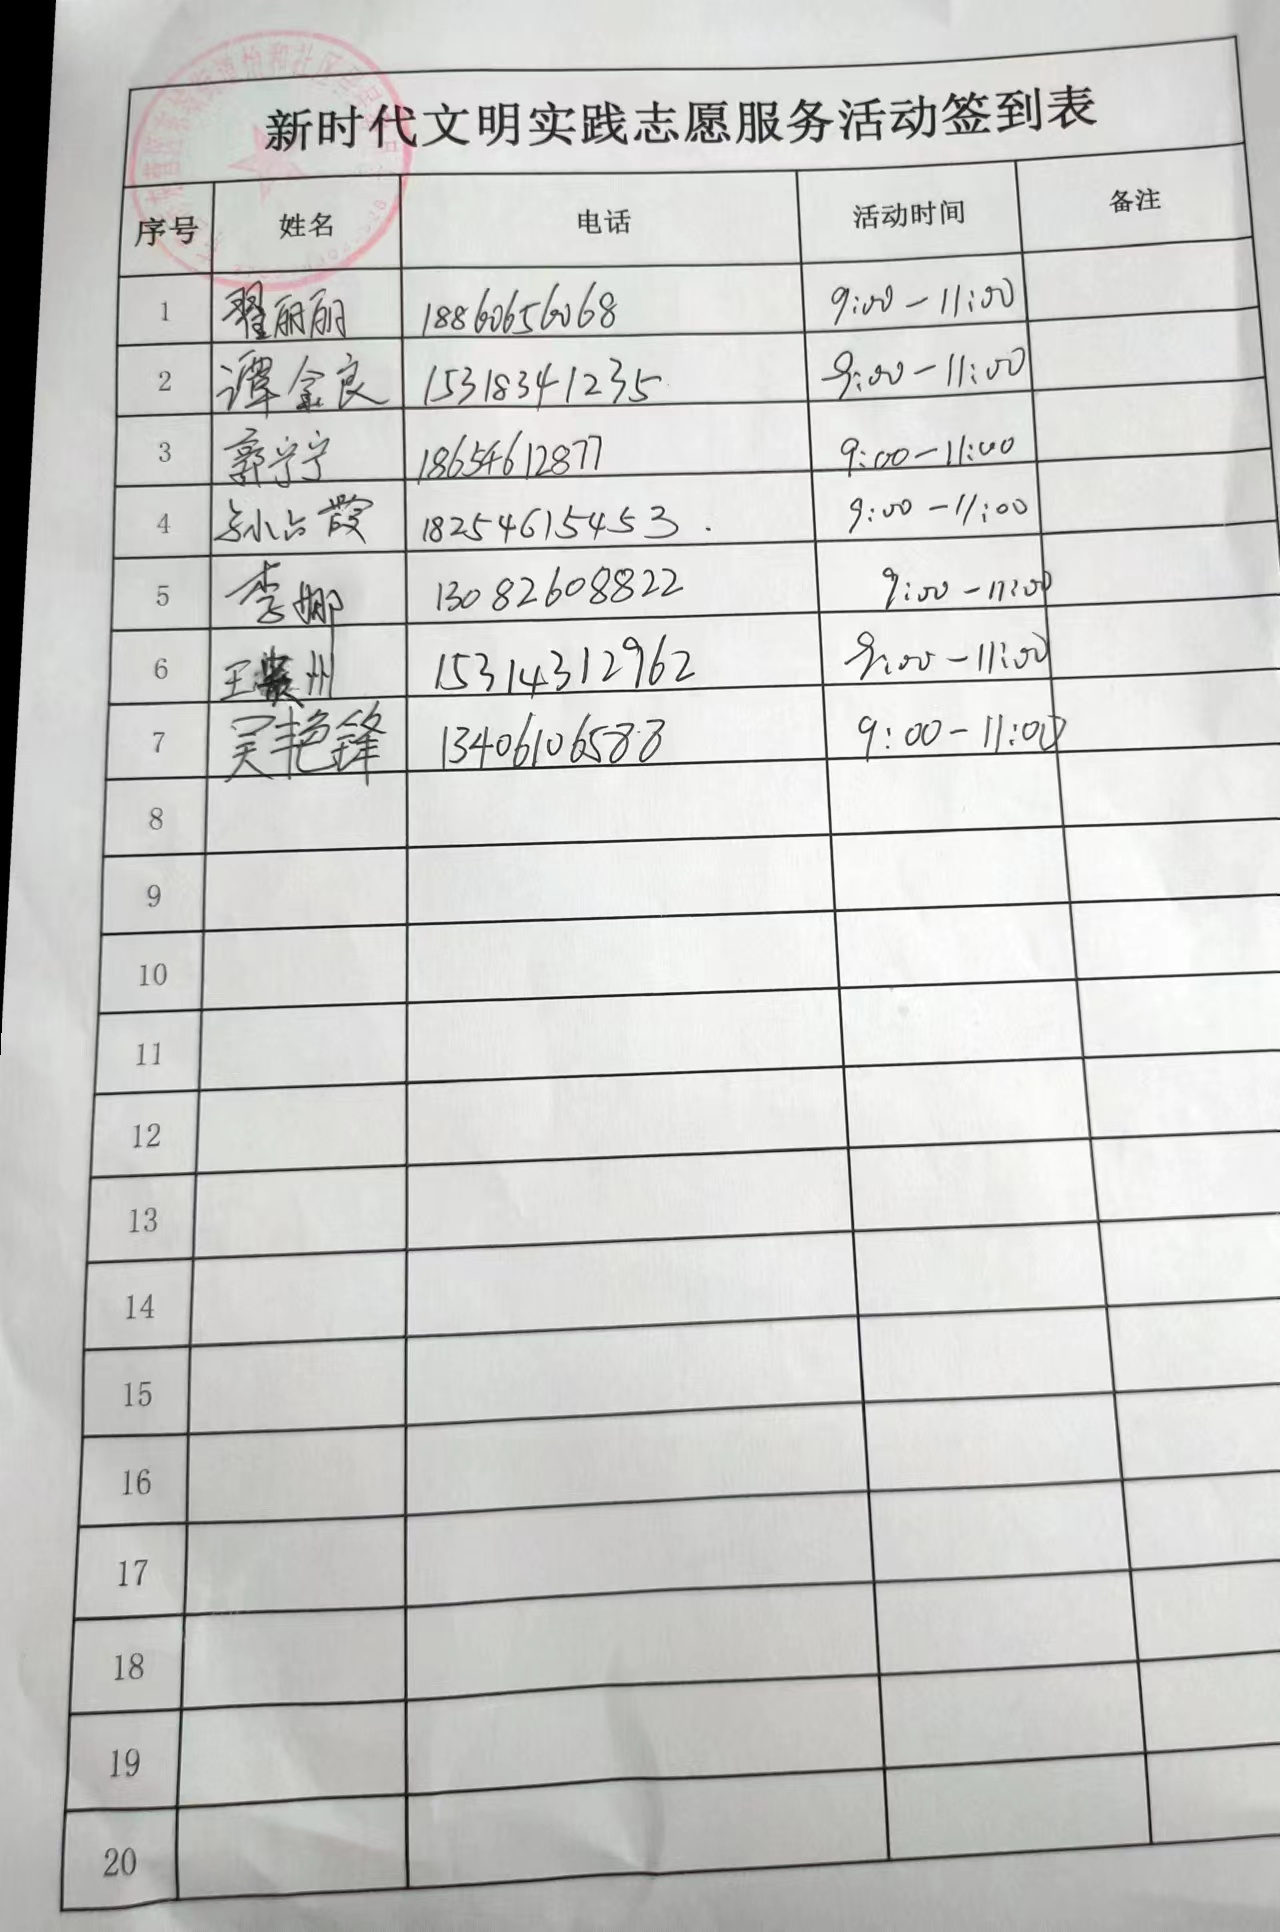 新时代文明实践志愿服务活动签到表
序号 姓名 电话 活动时间 备注
1 翟丽丽 18860656068 9:00-11:00
2 谭金良 15318341235 9:00-11:00
3 郭宁宁 18654612877 9:00-11:00
4 18254615453. 9:00-11:00
5 李娜 13082608822 9:00-11:00
6 王 州 15314312962 9:00-11:00
7 吴艳锋 13406106588 9:00-11:00
8
9
10
11
12
13
14
15
16
17
18
19
20